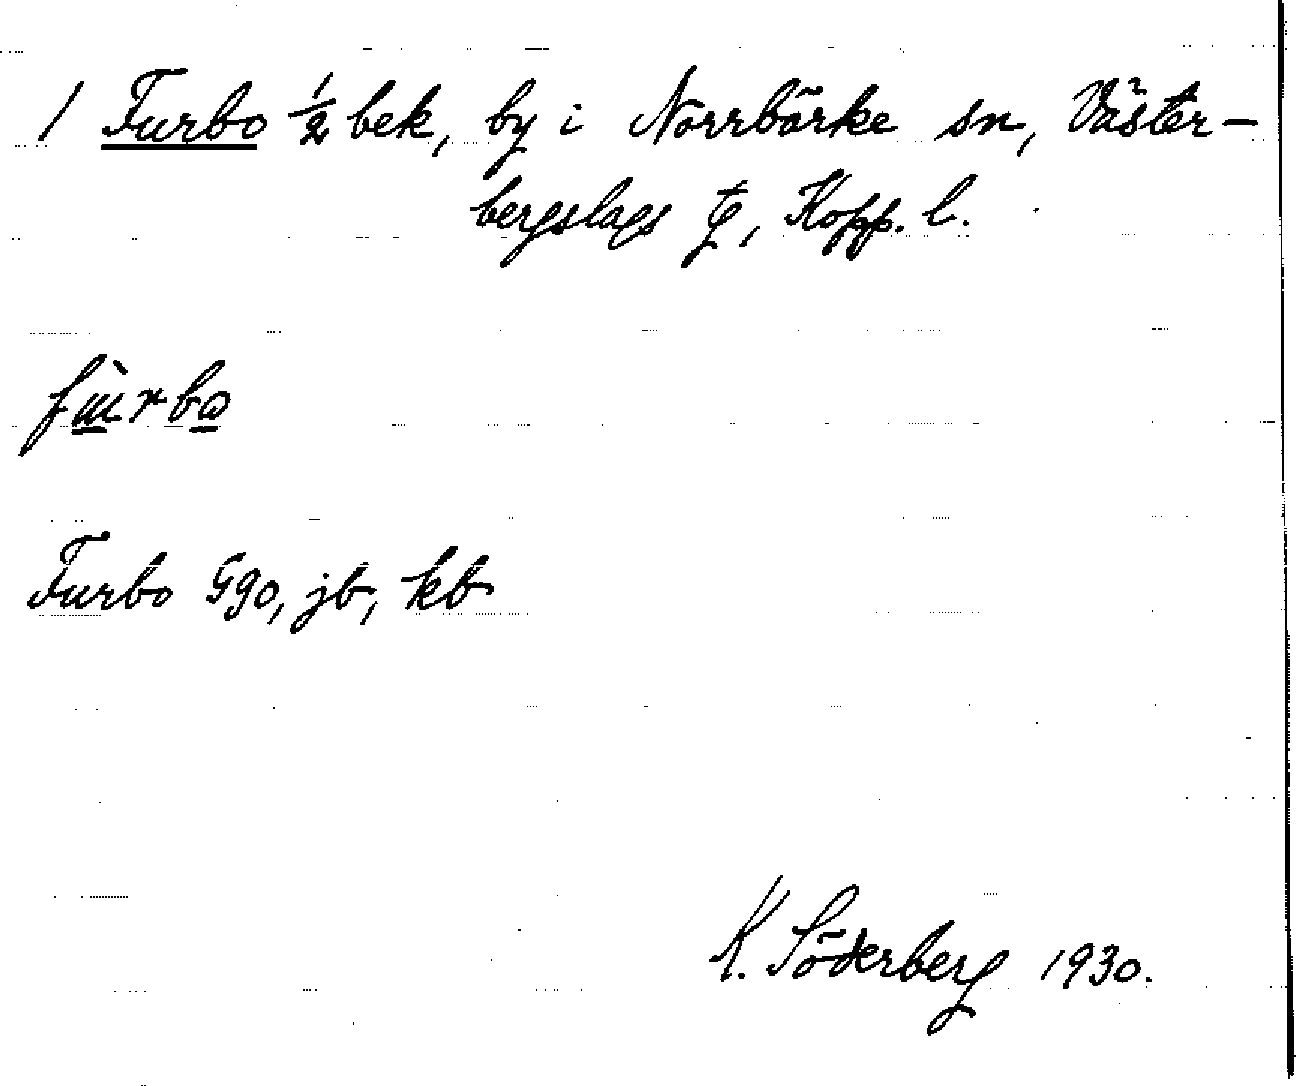 1 Furbo ½ bek, by i Norrbärke sn, Väster-
bergslags tg, Kopp. l.
fùrbo
Furbo Ggo, jb, kb
K. Söderberg 1930.